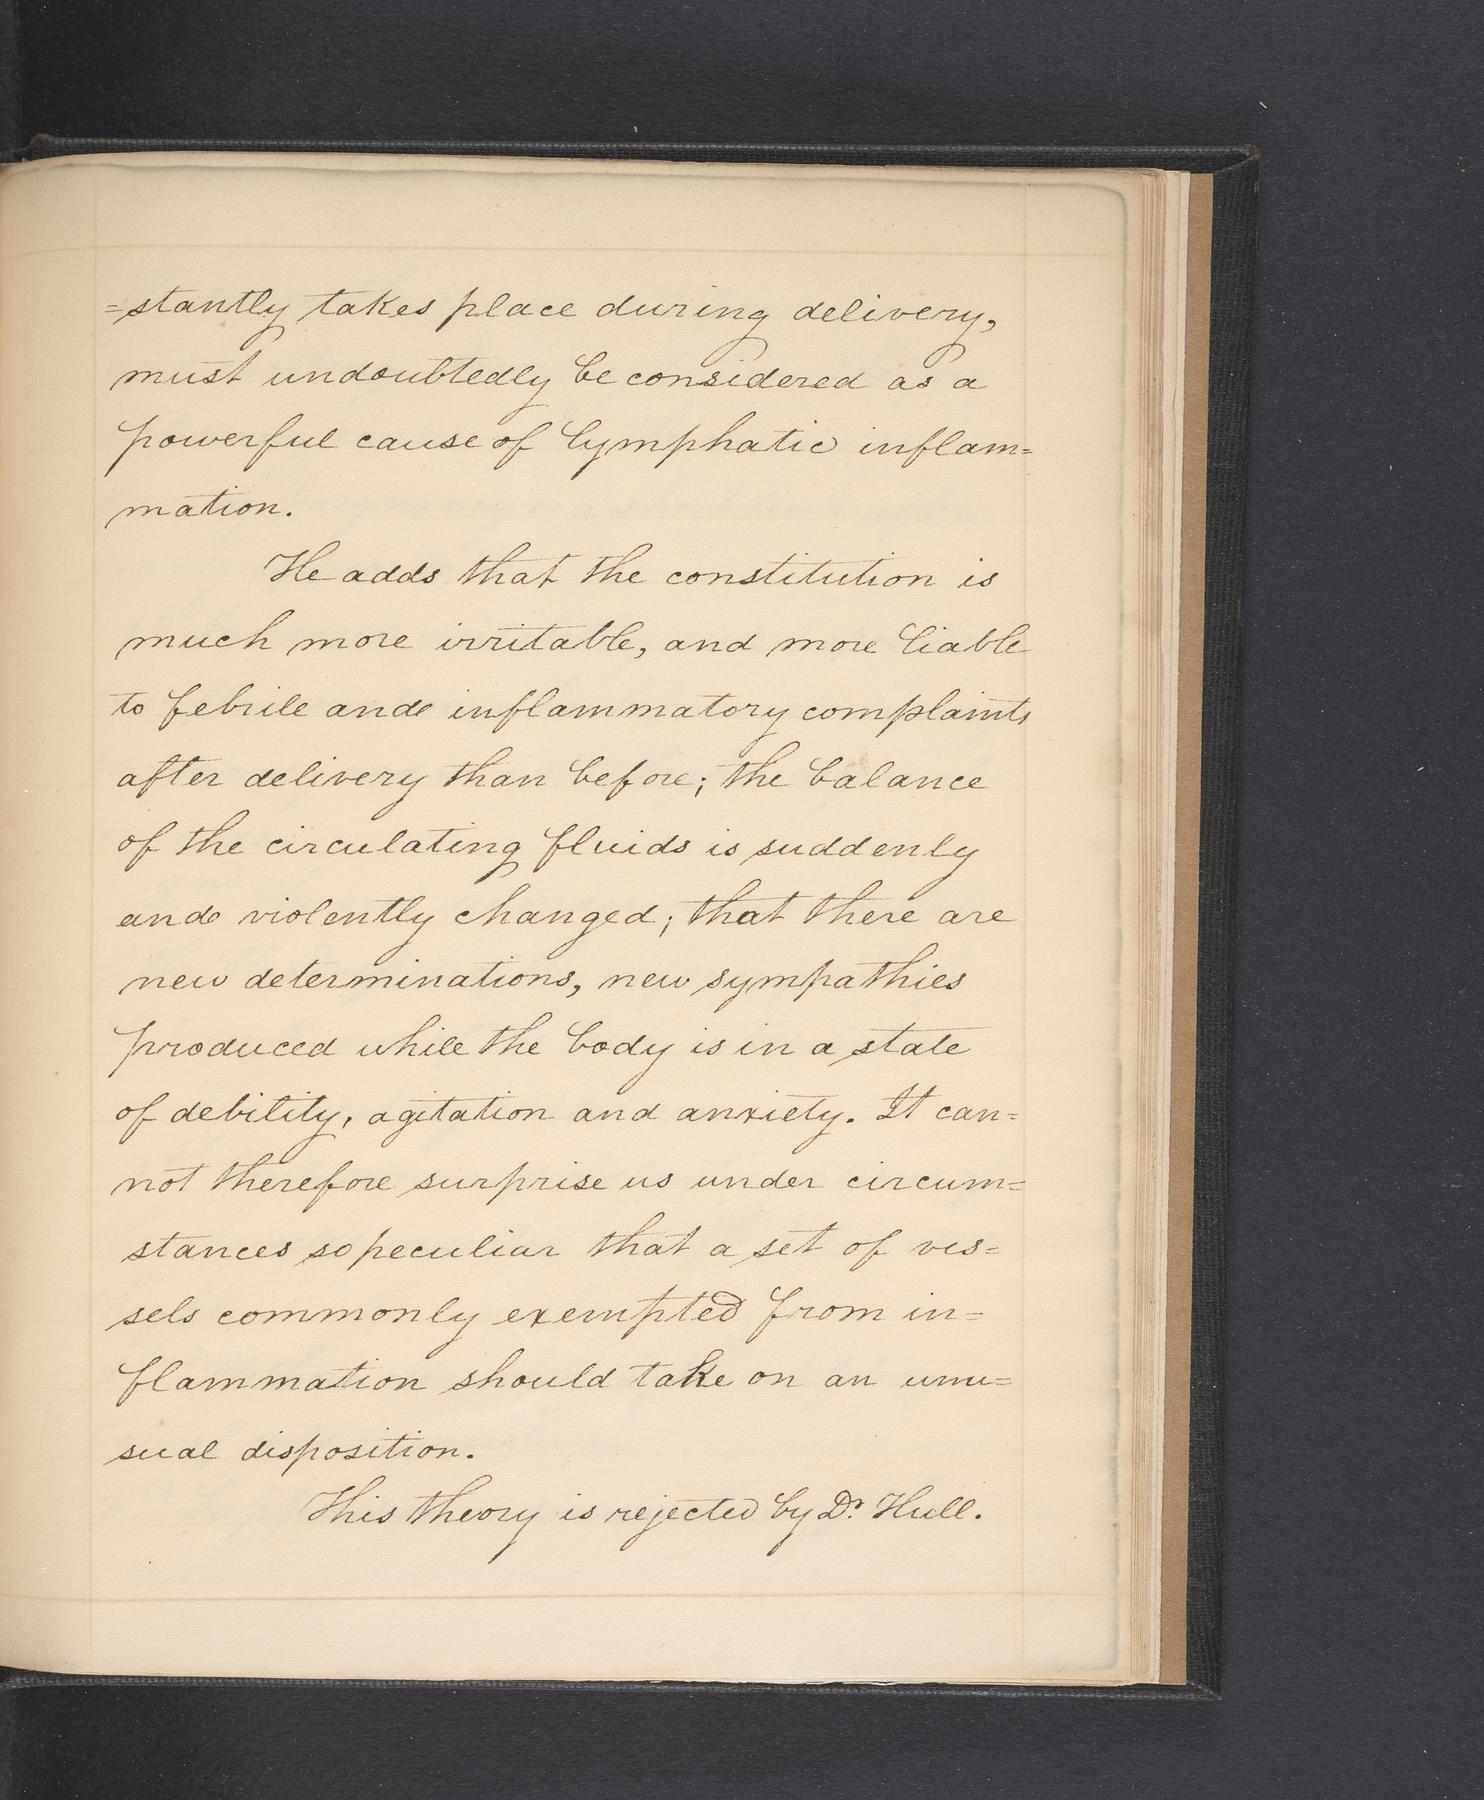 =stantly takes place during delivery,
must undoubtedly be considered as a
powerful cause of lymphatic inflam=
mation.
He adds that the constitution is
much more irritable, and more liable
to febrile and inflammatory complaints
after delivery than before; the balance
of the circulating fluids is suddenly
and violently changed; that there are
new determinations, new sympathies
produced while the body is in a state
of debility, agitation and anxiety. It can=
not therefore surprise us under circum=
stances so peculiar that a set of ves=
sels commonly exempted from in=
flammation should take on an unu=
sual disposition.
This theory is rejected by Dr. Hull.